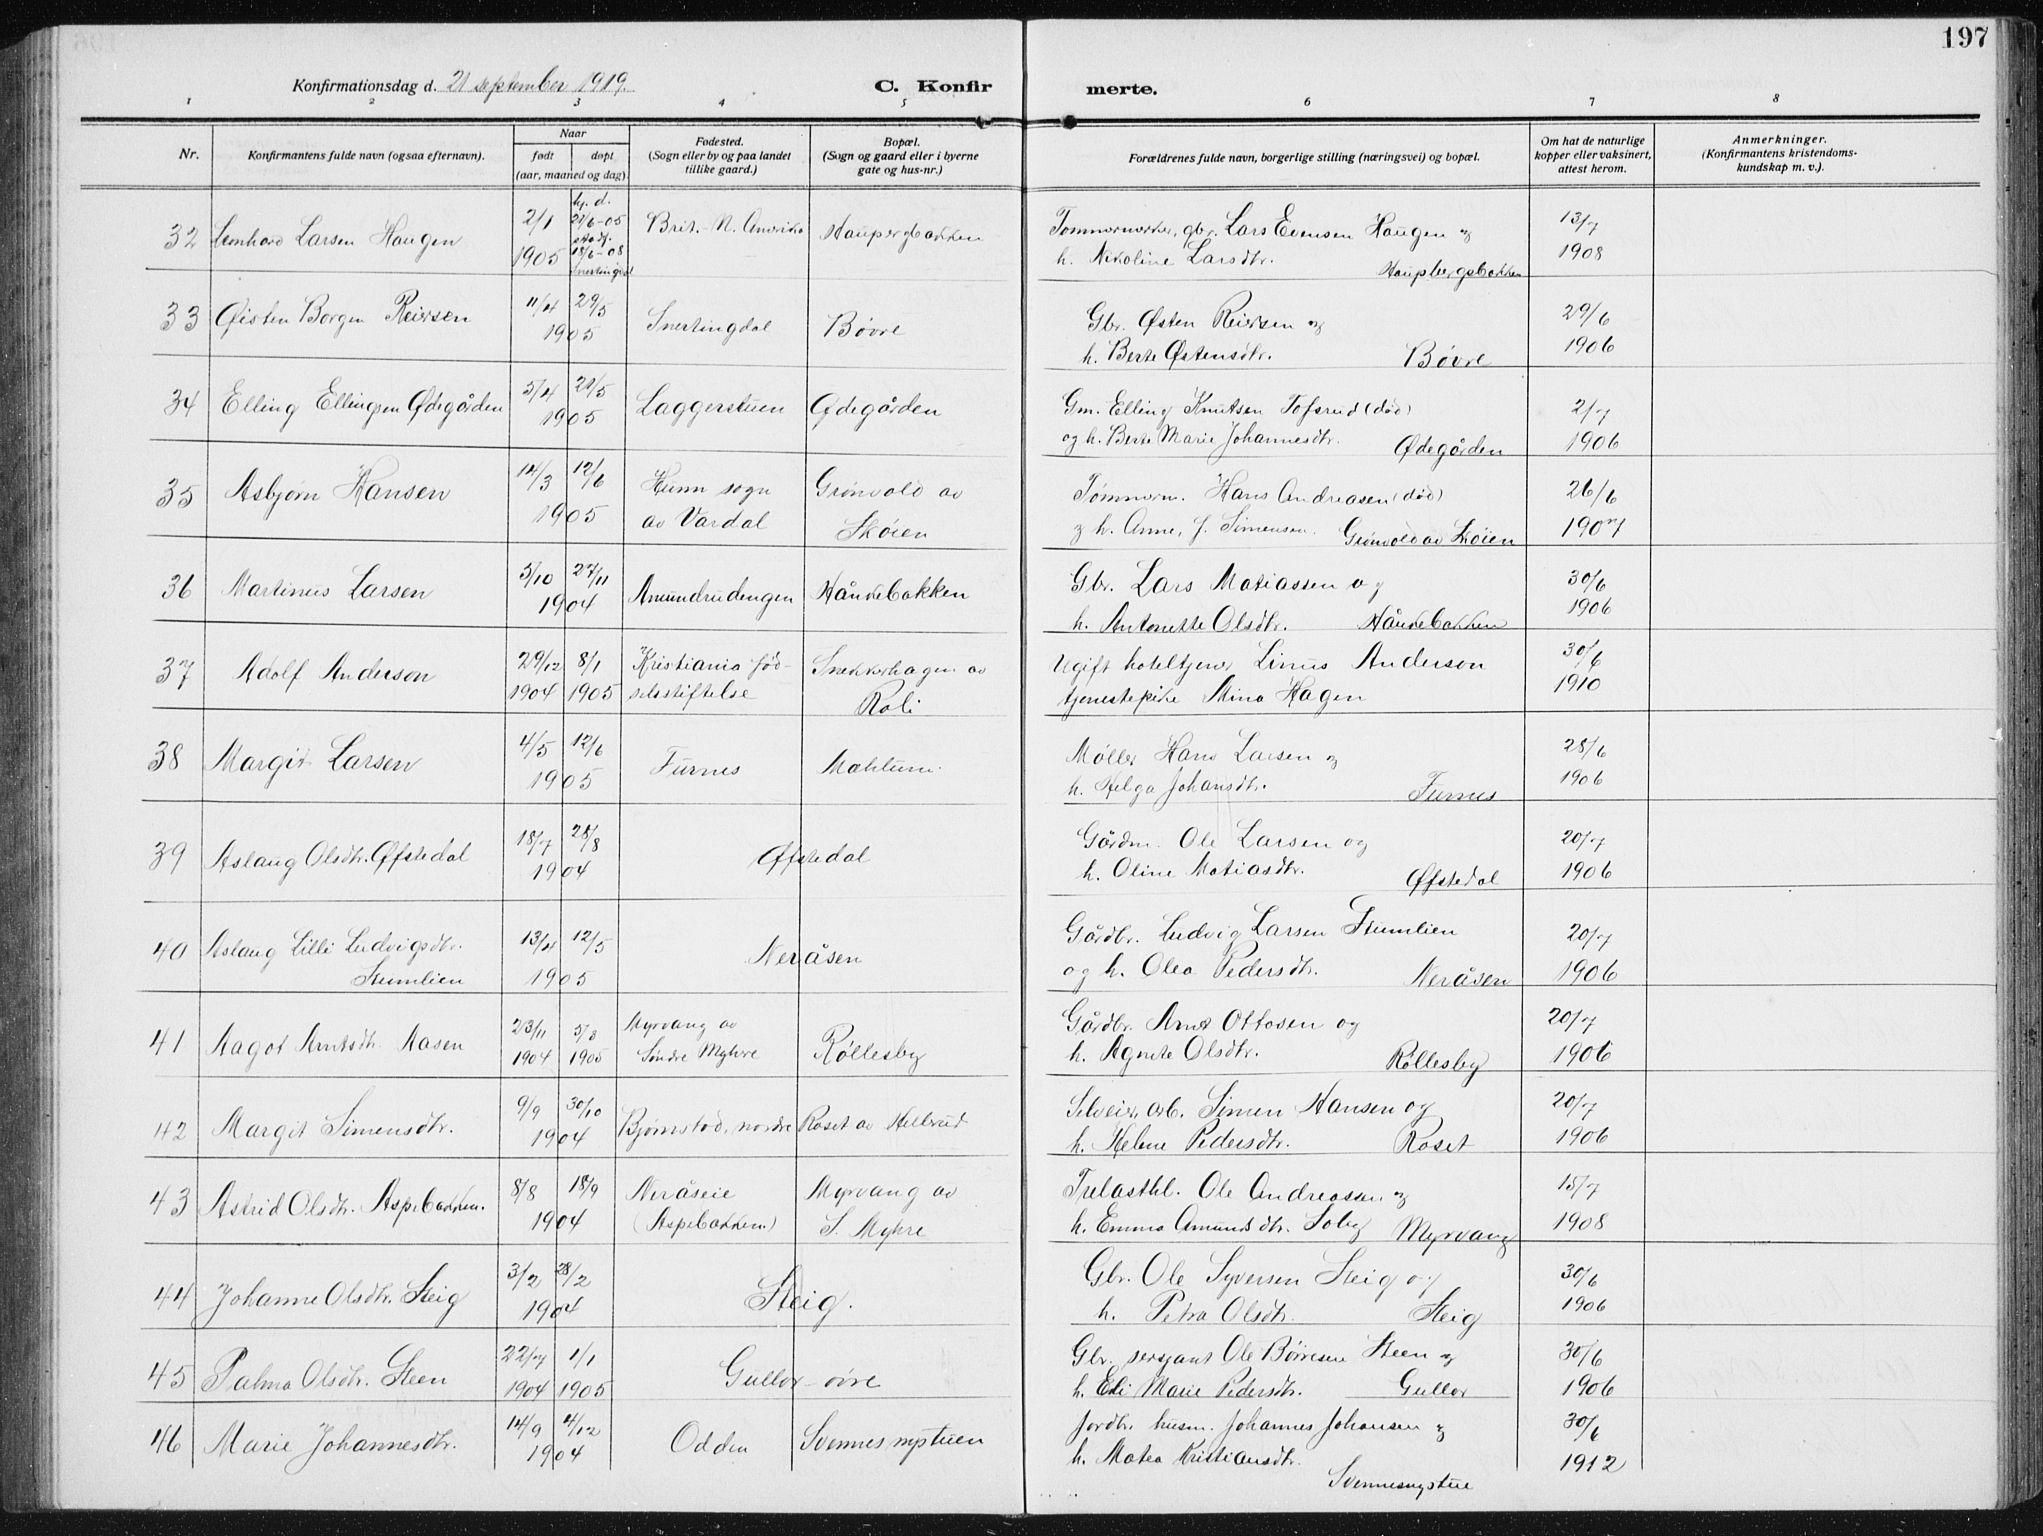 197
Konfirmationsdag d. 21 september 1919.
C. Konfir merte.
1 2 3 4 5 6 7 8
Nr.
Konfirmantens fulde navn (ogsaa efternavn).
Naar
født døpt
(aar, maaned og dag).
Fødested.
(Sogn eller by og paa landet
tillike gaard.)
Bopæl.
(Sogn og gaard eller i byerne
gate og hus-nr.)
Forældrenes fulde navn, borgerlige stilling (næringsvei) og bopæl.
Om hat de naturlige
kopper eller vaksinert,
attest herom.
Anmerkninger.
(Konfirmantens kristendoms-
kundskap m. v.).
32 Leonhard Larsen Haugen 2/1 1905
hj. d.
21/6-05
stadf.
18/6-08
Snertingdal
Brit. N. Amerika
Haupergbakken
gbr. Lars Evensen Haugen og
h. Nikoline Larsdtr. Haupbergsbakken
13/7
1908
33 Øisten Borgen Reiersen 11/4 29/5
1905
Snertingdal
Bøvre
Gbr. Østen Reiersen og
h. Berte Østensdtr. Bøvre
29/6
1906
34 Elling Ellingsen Ødegården 5/4 21/5
1905
Laggerstuen
Ødegården
Gm. Elling Knutsen Tofsrud (død)
og h. Berte Marie Johannesdtr. Ødegården
2/7
1906
35 Asbjørn Hansen 14/3 12/6
1905
Hunn sogn
av Vardal
Grønvold av
Skøien
Tømmerm. Hans Andreasen (død)
og h. Anne, f. Simensen. Grønvold av Skøien
26/6
1907
36 Martinus Larsen 5/10 27/11
1904
Amundrudengen
Håndebakken
Gbr. Lars Matiassen og
h. Antonette Olsdtr. Håndebakken
30/6
1906
37 Adolf Anderson 29/12 8/1
1904 1905
Kristiania fød-
selsstiftelse
Snekkerhagen av
Roli
Ugift hoteltjener Linus Anderson
tjenestepike Mina Hagen
30/6
1910
38 Margit Larsen 4/5 12/6
1905
Furnes
Mahlum.
Møller Hans Larsen og
h. Helga Johansdtr. Furnes
28/6
1906
39 Aslaug Olsdtr. Øfstedal 18/7 28/8
1904
Øfstedal
Gårdm. Ole Larsen og
h. Oline Matiasdtr. Øfstedal
20/7
1906
40 Aslaug Lilli Ludvigsdtr.
Stumlien
13/4 12/5
1905
Neråsen
Gårdbr. Ludvig Larsen Stumlien
og h. Olea Pedersdtr. Neråsen
20/7
1906
41 Aagot Arntsdtr. Aasen 23/11 5/3
1904 1905
Myrvang av
Søndre Myhre
Røllesby
Gårdbr. Arnt Ottosen og
h. Agnete Olsdtr. Røllesby
20/7
1906
42 Margit Simensdtr. 9/9 30/10
1904
Bjørnstad, nordre
Roset av Hellerud
Selveier, arb. Simen Hansen og
h. Helene Pedersdtr. Roset
20/7
1906
43 Astrid Olsdtr. Aspebakken. 8/8 18/9
1904
Neråseie
(Aspebakken)
Myrvang av
S. Myhre
Trelasthl. Ole Andreassen og
h. Emma Amundsdtr. Soby Myrvang
15/7
1908
44 Johanne Olsdtr. Steig 3/2 28/2
1904
Steig.
Gbr. Ole Syversen Steig og
h. Petra Olsdtr. Steig
30/6
1906
45 Palma Olsdtr. Steen 22/7 1/1
1904 1905
Gullor øvre
Gbr. sersjant Ole Børresen Steen og
h. Eli Marie Pedersdtr. Gullor
30/6
1906
46 Marie Johannesdtr. 14/9 4/12
1904
Odden
Svennes nystuen
Jordbr. husm. Johannes Johansen og
h. Matea Kristiansdtr.
Svennesnystue
30/6
1912